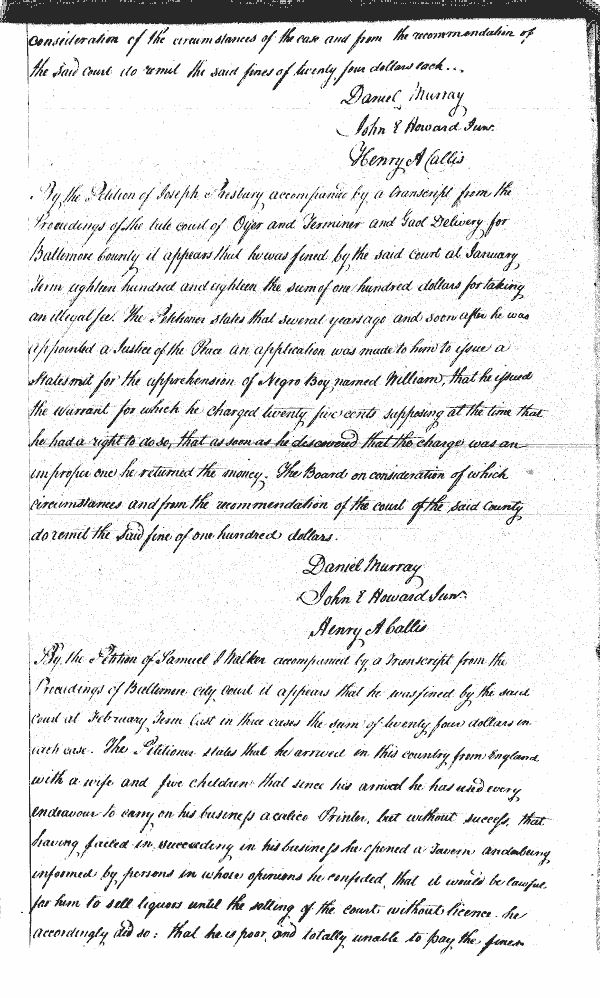 consideration of the circumstances of the case and from the recommendation of
the said court do remit the said fines of twenty four dollars each...
Daniel Murray
John E Howard Junr.
Henry A Callis
By the Petition of Joseph Presbury accompanied by a transcript from the
Proceedings of the late court of Oyer and Terminer and Gaol Delivery for
Baltimore County it appears that he was fined by the said court at January
Term eighteen hundred and eighteen the sum of one hundred dollars for taking
an illegal fee. The Petitioner states that several years ago and soon after he was
appointed a Justice of the Peace an application was made to him to issue a
States writ for the apprehension of Negro Boy named William, that he issued
the warrant for which he charged twenty five cents supposing at the time that
he had a right to do so, that as soon as he discovered that the charge was an
improper one he returned the money. The Board on consideration of which
circumstances and from the recommendation of the court of the said County
do remit the said fine of one hundred dollars.
Daniel Murray
John E Howard Junr.
Henry A Callis
By the Petition of Samuel J Walker accompanied by a Transcript from the
Proceedings of Baltimore city court it appears that he was fined by the said
court at February Term last in three cases the sum of twenty four dollars in
each case. The Petitioner states that he arrived in this country from England
with a wife and five children that since his arrival he has used every
endeavour to carry on his business a calico Printer, but without success, that
having failed in succeeding in his business he opened a Tavern and being
informed by persons in whose opinions he confided that it would be lawful
for him to sell liquors until the sitting of the court without licence he
accordingly did so: that he is poor and totally unable to pay the fines